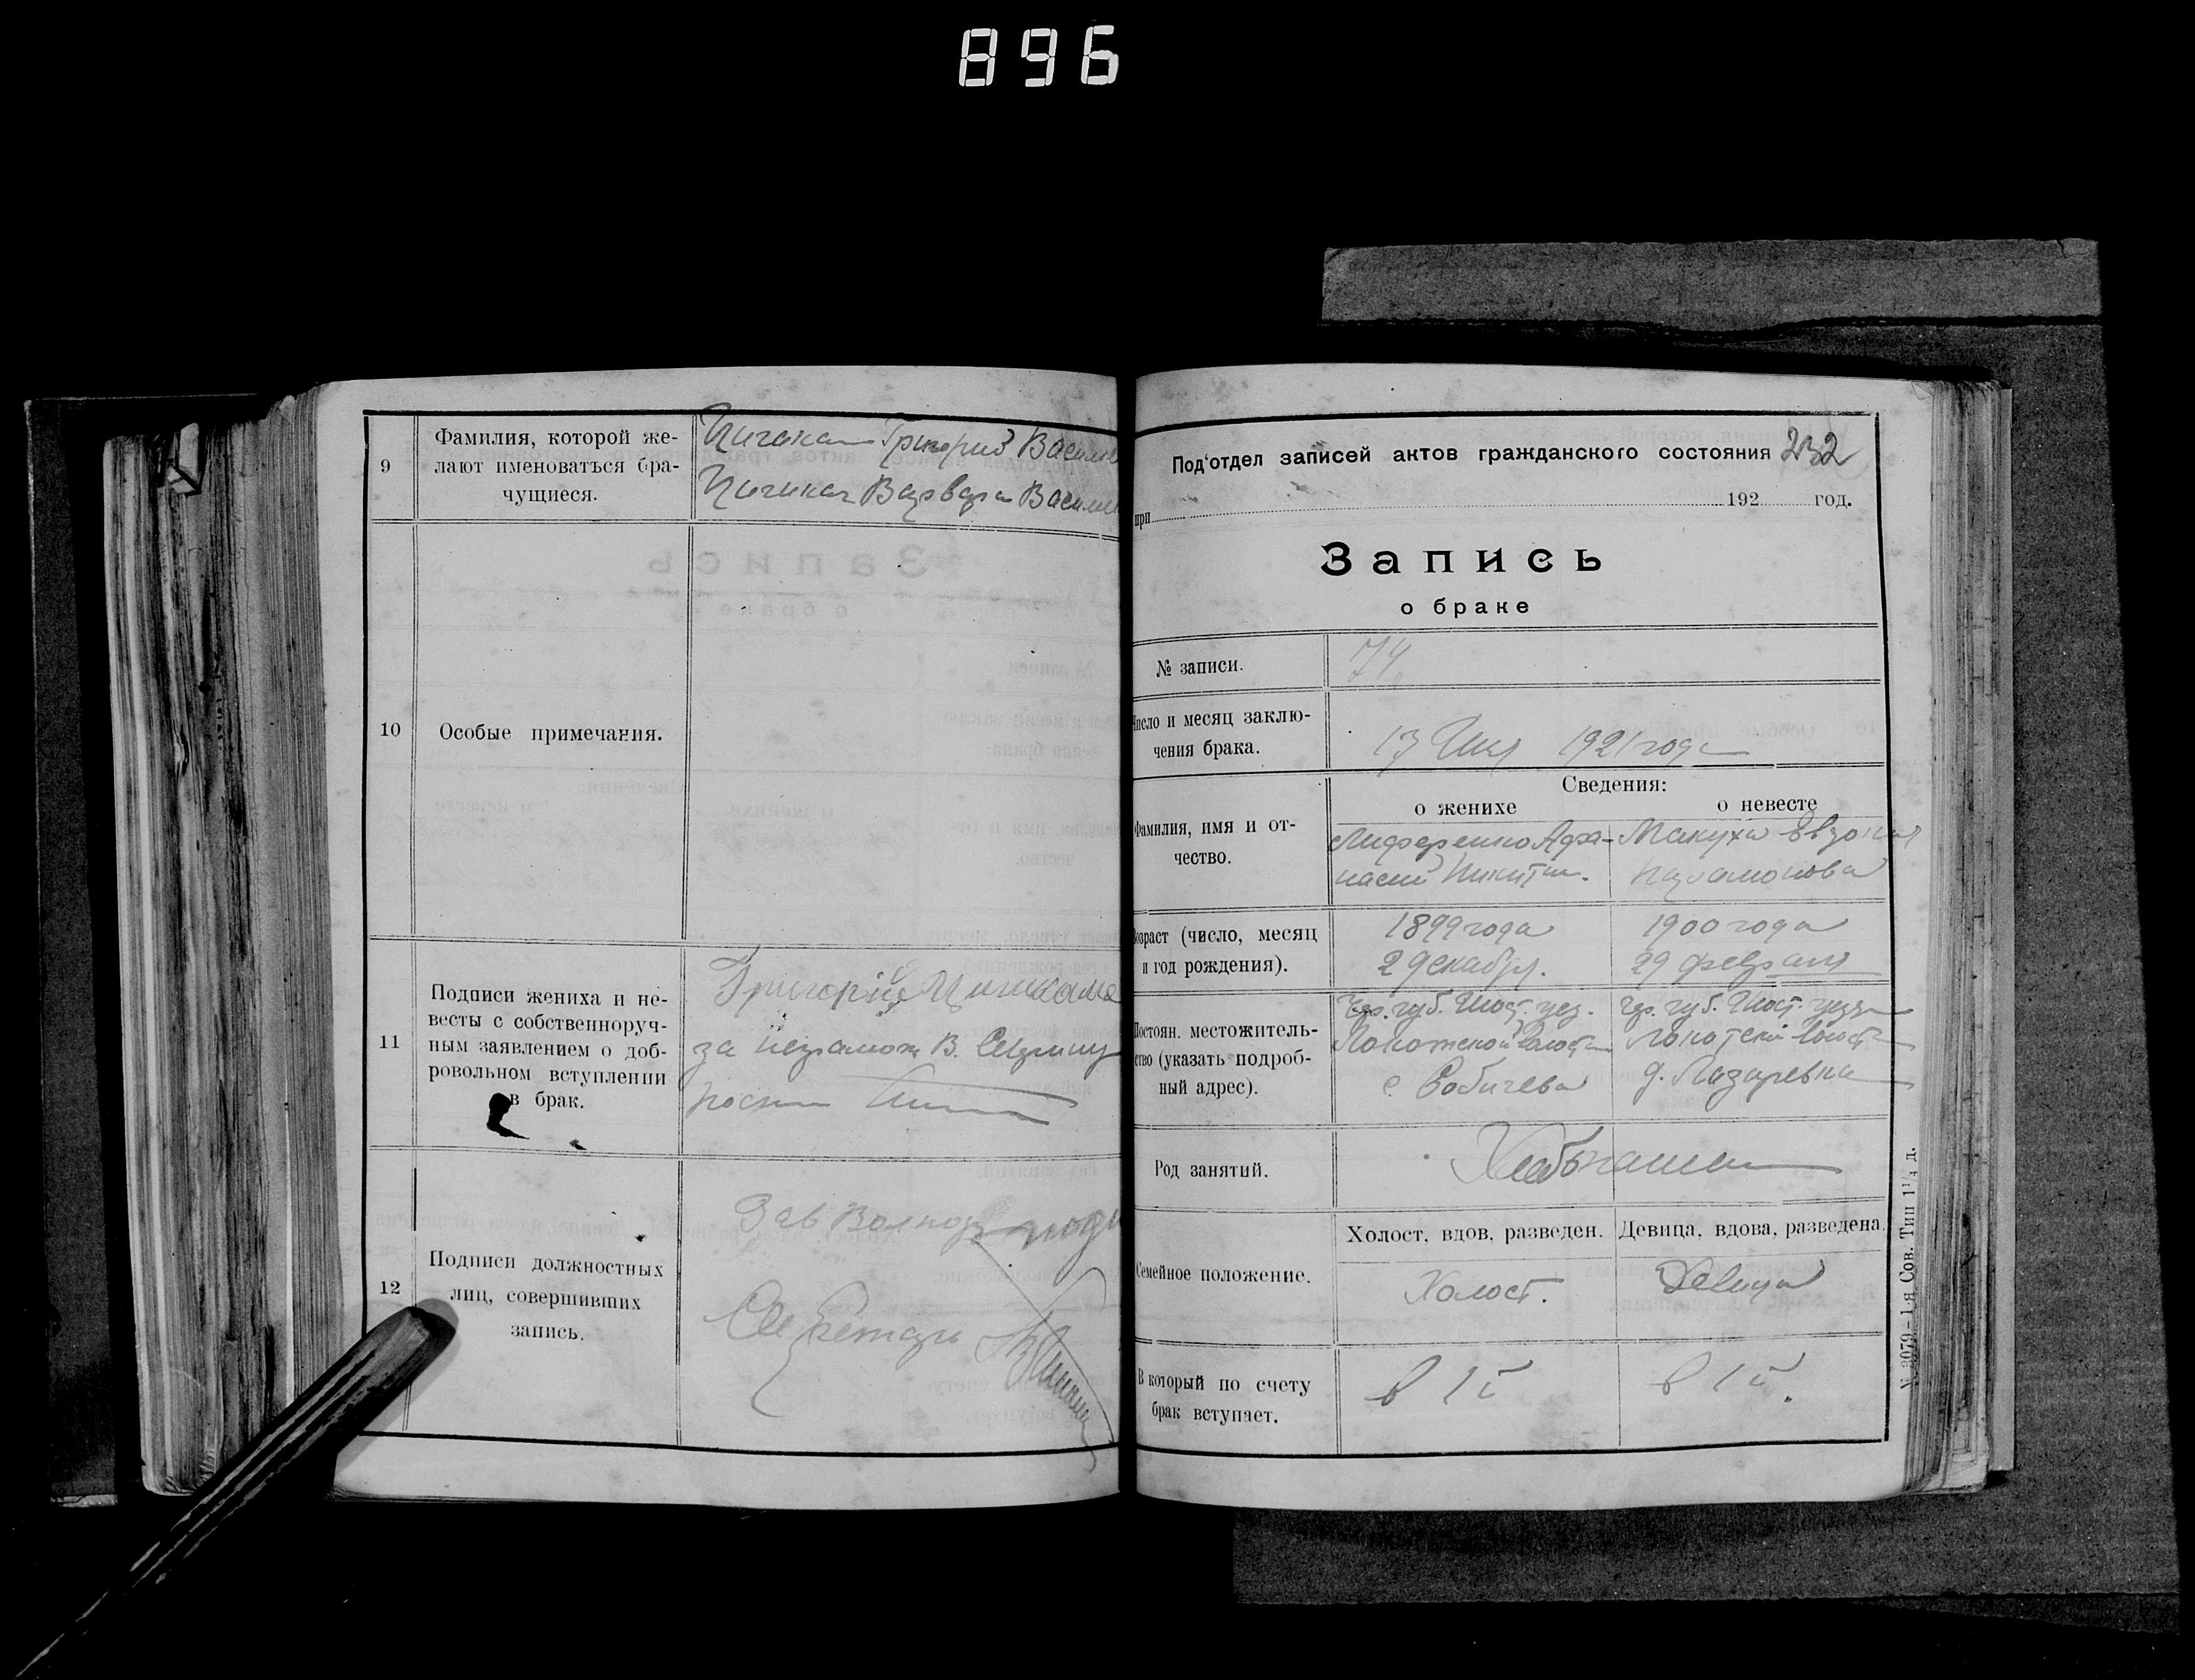 896
9
Фамилия, которой же-
лают именоваться бра-
чущиеся.
Григорий Василье
Варвара Васили
10
Особые примечания.
11
Подписи жениха и не-
весты с собственноруч-
ным заявлением о доб-
ровольном вступлении
в брак.
Григорій
за неграмотн В.
12
Подписи должностных
лиц, совершивших
запись.
Зав
Секретарь
Под'отдел записей актов гражданского состояния 232
при 192 год.
Запись
о браке
№ записи.
74
Число и месяц заклю-
чения брака.
13 1921 года
Сведения:
о женихе
о невесте
Фамилия, имя и от-
чество.
Лиференко Афа-
насий Никитин.
Макуха Евдокия
Парамонова
Возраст (число, месяц
и год рождения).
1899 года
2 декабря.
1900 года
29 февраля
Постоян. местожитель-
ство (указать подроб-
ный адрес).
Чер. губ. Глост. уез.
Локотской Волости
с. Собичева
Чер. губ. Глост. уезда
Локотской Волости
д. Лазаревка
Род занятий.
Семейное положение.
Холост, вдов, разведен.
Девица, вдова, разведена.
Холост.
Девица
В который по счету
брак вступает.
в 1й
в 1й.
№ 3079–1-я Сов. Тип 1¼ д.